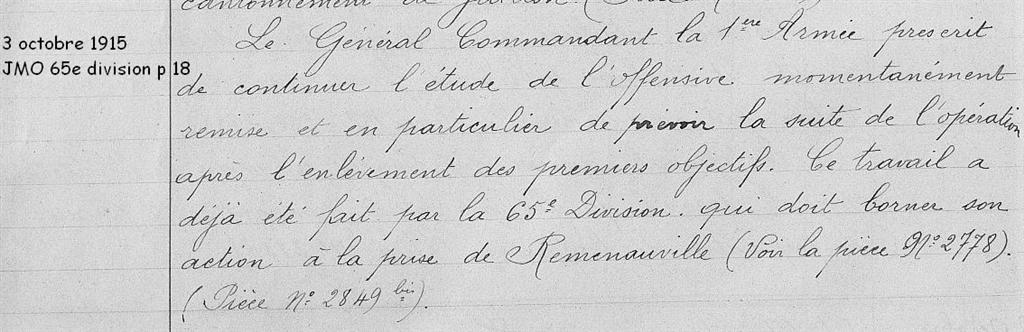 cantonnement de
3 octobre 1915
JMO 65e division p 18
Le Général Commandant la 1ère Armée prescrit
de continuer l'étude de l'offensive momentanément
remise et en particulier de prévoir la suite de l'opération
après l'enlévement des premiers objectifs. Ce travail a
déjà été fait par la 65e Division. qui doit borner son
action à la prise de Remenauville (Voir la pièce No 2778).
(Pièce No 2849 bis).